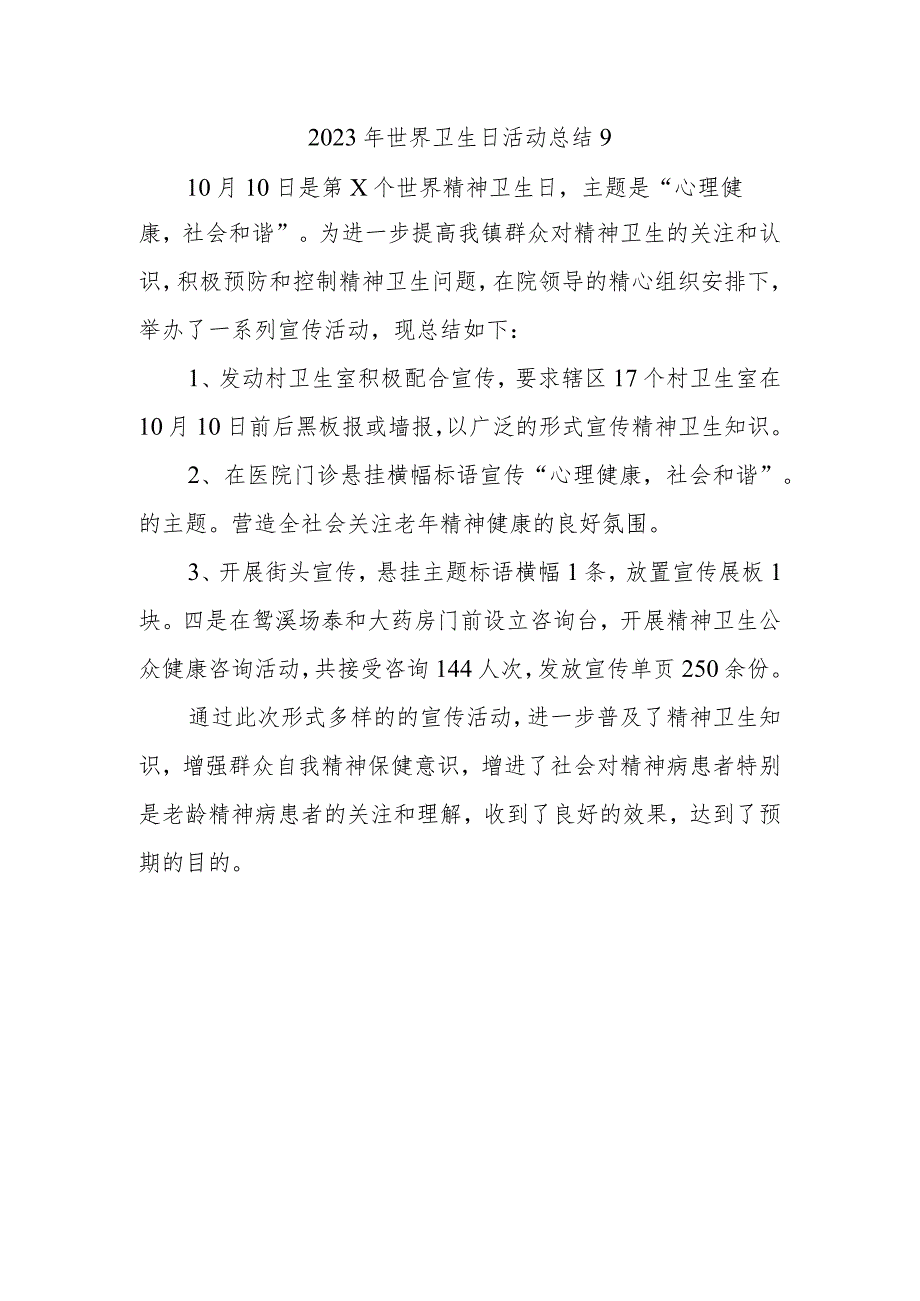 2023 年世界卫生日活动总结 9
10 月 10 日是第 X 个世界精神卫生日，主题是“心理健
康，社会和谐”。为进一步提高我镇群众对精神卫生的关注和认
识，积极预防和控制精神卫生问题，在院领导的精心组织安排下，
举办了一系列宣传活动，现总结如下：
1、发动村卫生室积极配合宣传，要求辖区 17 个村卫生室在
10 月 10 日前后黑板报或墙报，以广泛的形式宣传精神卫生知识。
2、在医院门诊悬挂横幅标语宣传“心理健康，社会和谐”。
的主题。营造全社会关注老年精神健康的良好氛围。
3、开展街头宣传，悬挂主题标语横幅 1 条，放置宣传展板 1
块。四是在鸳溪场泰和大药房门前设立咨询台，开展精神卫生公
众健康咨询活动，共接受咨询 144 人次，发放宣传单页 250 余份。
通过此次形式多样的的宣传活动，进一步普及了精神卫生知
识，增强群众自我精神保健意识，增进了社会对精神病患者特别
是老龄精神病患者的关注和理解，收到了良好的效果，达到了预
期的目的。